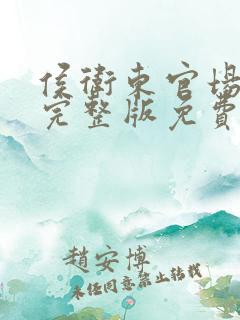 侯衛東官場
完整版免費
趙安博
未任同意禁止轉載